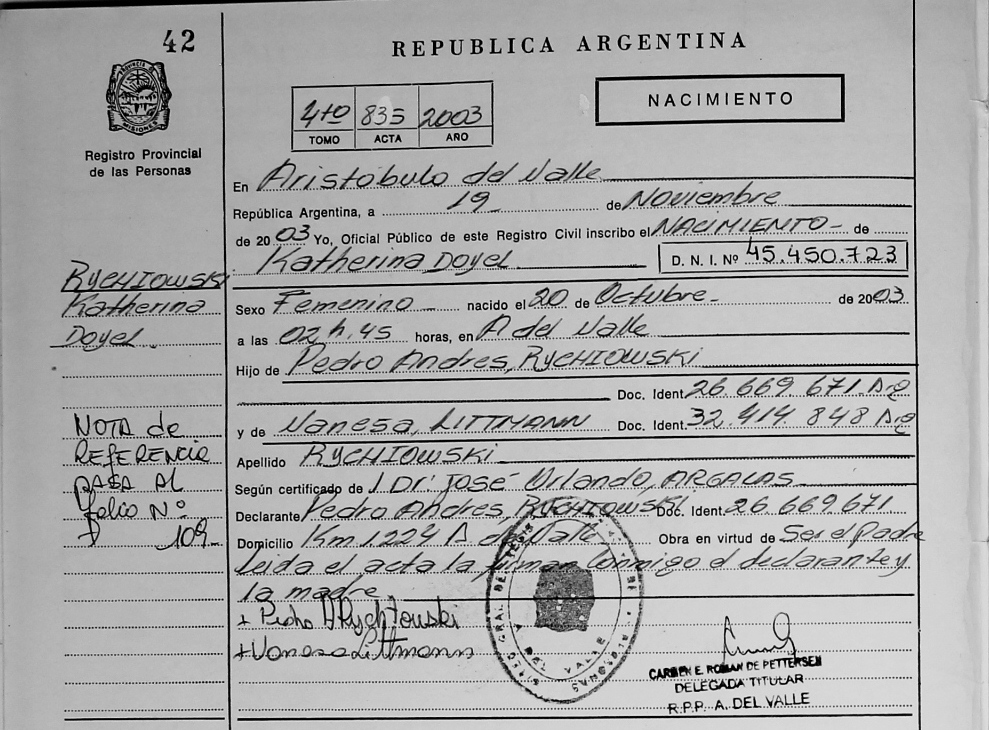 42
REPUBLICA ARGENTINA
PROVINCIA DE MISIONES
Registro Provincial
de las Personas
4to 835 2003
TOMO ACTA AÑO
NACIMIENTO
En Aristóbulo del Valle
República Argentina, a 19 de Noviembre
de 2003 Yo, Oficial Público de este Registro Civil inscribo el NACIMIENTO - de
Katherina Doyel D. N. I. Nº 45.450.723
RYCHTOWSKI
Katherina
Doyel.
Sexo Femenino nacido el 20 de Octubre - de 2003
a las 02 h. 45 horas, en A del Valle
Hijo de Pedro Andres, RYCHTOWSKI
Doc. Ident. 26.669.671. Arg
y de Vanesa, LITTMANN Doc. Ident. 32.414.848 Arg
Apellido RYCHTOWSKI
Según certificado de Dr. José Orlando, ARGALAS
Declarante Pedro Andres, RYCHTOWSKI Doc. Ident. 26.669.671
Domicilio Km 1224 A del Valle Obra en virtud de Ser el Padre
leida el acta la firman conmigo el declarante y
la madre
+ Pedro A Rychtowski
+ Vanesa Littmann
NOTA de
REFERENCIA
PASA AL
folio Nº
109
A DEL VALLE
MISIONES
CARMEN E. ROMAN DE PETTERSEN
DELEGADA TITULAR
R.P.P. A. DEL VALLE